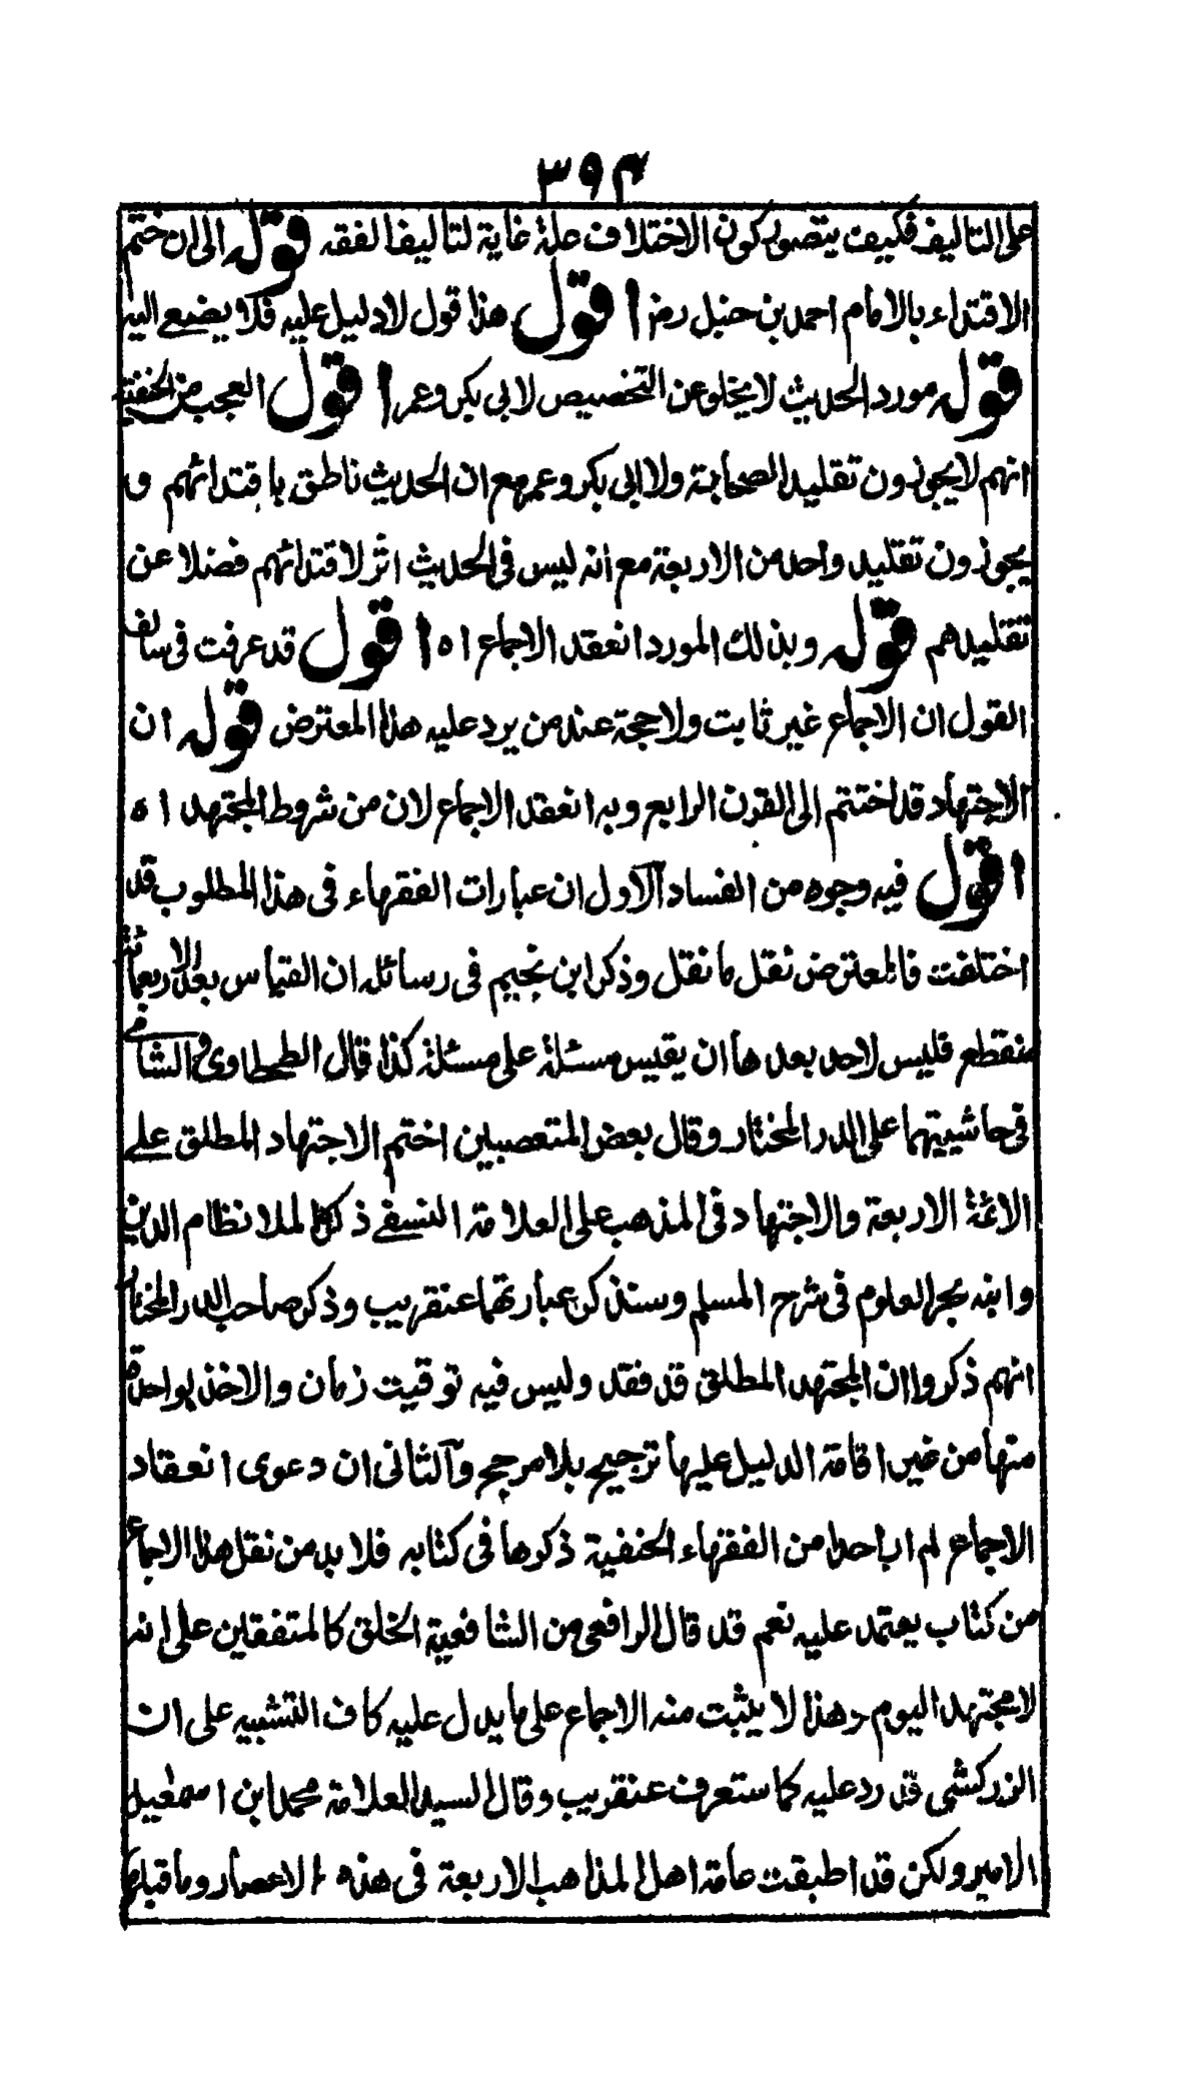 ۳۹۴
على التاليف فكيف يتصور كون الاختلاف علة غاية لتاليف الفقه قوله الى ان ختم
الاقتداء بالامام احمد بن حنبل رض اقول هذا قول لا دليل عليه فلا يضع اليه
قوله مورد الحديث لا يخلو عن التخصيص لابى بكر وعمر اقول العجب من الحنفية
انهم لا يجوزون تقليد الصحابة ولا ابى بكر وعمر مع ان الحديث ناطق باقتدائهم و
يجوزون تقليد واحد من الاربعة مع انه ليس فى الحديث اثر لاقتدائهم فضلا عن
تقليدهم قوله وبذلك المورد انعقد الاجماع اه اقول قد عرفت فى سالف
القول ان الاجماع غير ثابت ولا حجة عند من يرد عليه هذا المعترض قوله ان
الاجتهاد قد اختتم الى القرن الرابع وبه انعقد الاجماع لان من شروط المجتهد اه
اقول فيه وجوه من الفساد الآول ان عبارات الفقهاء فى هذا المطلوب قد
اختلفت فالمعترض نقل ما نقل وذكر ابن نجيم فى رسائله ان القياس بعد الاربعمائة
منقطع فليس لاحد بعدها ان يقيس مسئلة على مسئلة كذا قال الطحطاوى والشامى
فى حاشيتيهما على الدر المختار وقال بعض المتعصبين اختم الاجتهاد المطلق على
الائمة الاربعة والاجتهاد فى المذهب على العلامة النسفى ذكره الملا نظام الدين
وابنه بحر العلوم فى شرح المسلم وسنذكر عبارتهما عنقريب وذكر صاحب الدر المختار
انهم ذكروا ان المجتهد المطلق قد فقد وليس فيه توقيت زمان والاخذ بواحدة
منها من غير اقامة الدليل عليها ترجيح بلا مرجح وآلثانى ان دعوى انعقاد
الاجماع لم ار احدا من الفقهاء الحنفية ذكرها فى كتابه فلا بد من نقل هذا الاجماع
من كتاب يعتمد عليه نعم قد قال الرافعى من الشافعية الخلق كالمتفقين على انه
لا مجتهد اليوم وهذا لا يثبت منه الاجماع على ما يدل عليه كاف التشبيه على ان
الزركشى قد رد عليه كما ستعرف عنقريب وقال السيد العلامة محمد ابن اسمعيل
الامير ولكن قد اطبقت عامة اهل المذاهب الاربعة فى هذه الاعصار وما قبلها